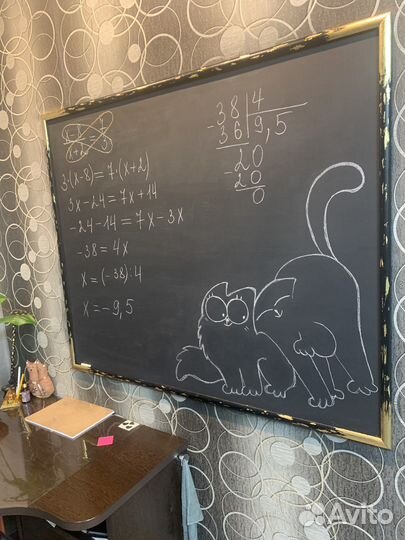 x-8 / x+2 = 7 / 3
3·(x-8)=7·(x+2)
3x-24=7x+14
-24-14=7x-3x
-38=4x
x=(-38):4
x=-9,5
-38 | 4
36 | 9,5
-20
20
0
Avito